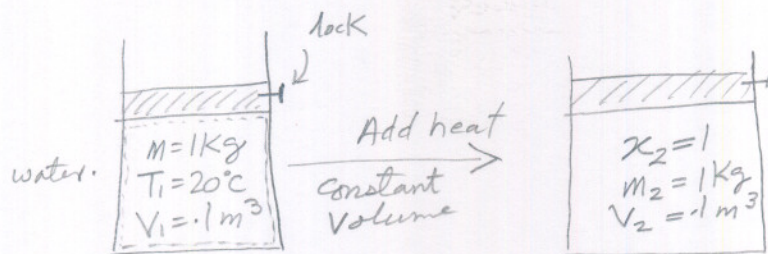 lock
water.
M=1Kg
T₁=20°C
V₁=.1m³
Add heat
constant
Volume
x₂=1
m₂=1Kg
V₂=.1m³